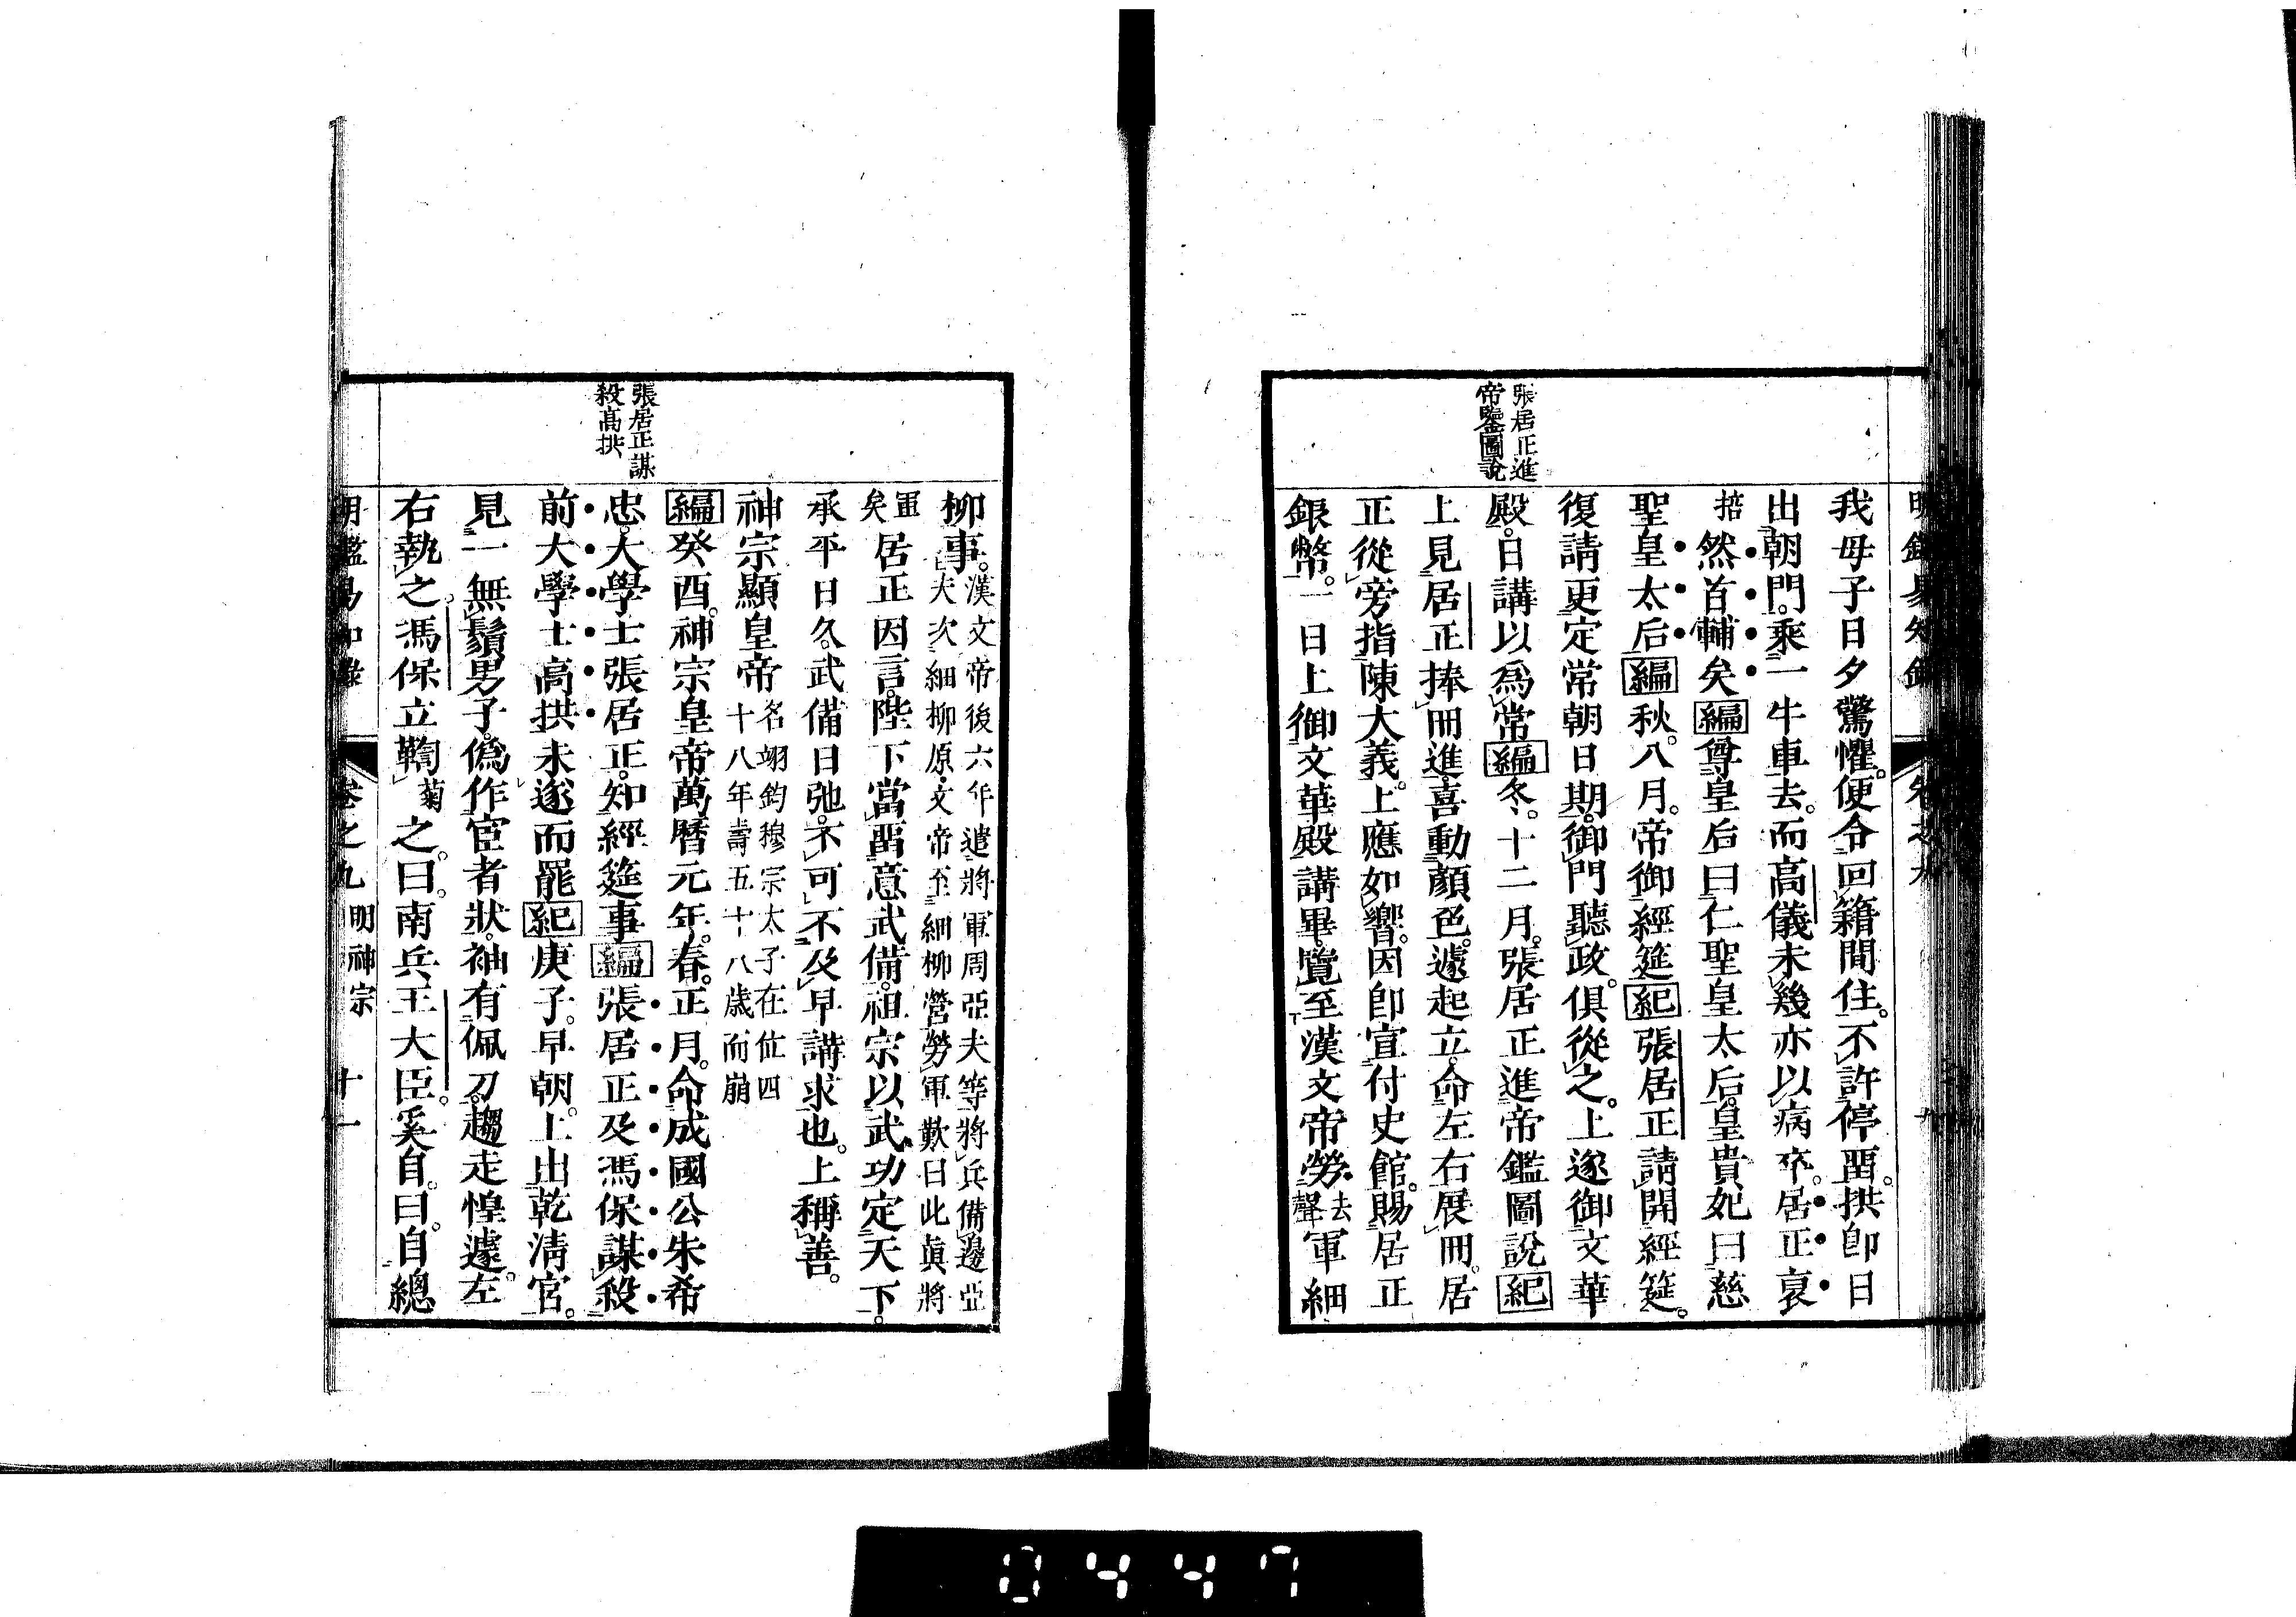 明鑑易知錄 卷之九
張居正進
帝鑒圖說
我母子日夕驚懼。便令回籍閒住。不許停畱。拱卽日
出朝門。乘一牛車去。而高儀未幾亦以病卒。居正裒
掊然首輔矣編尊皇后曰仁聖皇太后。皇貴妃曰慈
聖皇太后編秋。八月。帝御經筵紀張居正請開經筵。
復請更定常朝日期。御門聽政。俱從之。上遂御文華
殿。日講以爲常編冬。十二月。張居正進帝鑑圖說紀
上見居正捧冊進。喜動顏色。遽起立。命左右展冊。居
正從旁指陳大義。上應如響。因卽宣付史館。賜居正
銀幣。一日上御文華殿講畢。覽至漢文帝勞去聲軍細
柳事。漢文帝後六年遣將軍周亞夫等將兵備邊亞
夫次細柳原文帝至細柳營勞軍歎曰此眞將
軍矣居正因言。陛下當畱意武備。祖宗以武功定天下。
承平日久。武備日弛。不可不及早講求也。上稱善。
神宗顯皇帝名翊鈞穆宗太子在位四
十八年壽五十八歲而崩
張居正謀
殺高拱
編癸酉。神宗皇帝萬曆元年。春。正月。命成國公朱希
忠。大學士張居正。知經筵事編張居正及馮保謀殺
前大學士高拱未遂而罷紀庚子。早朝。上出乾淸宮。
見一無鬚男子。僞作宦者狀。袖有佩刀。趨走惶遽。左
右執之。馮保立鞫菊之。曰。南兵王大臣。奚自。曰。自總
明鑑易知錄 卷之九 明神宗 十一
0447